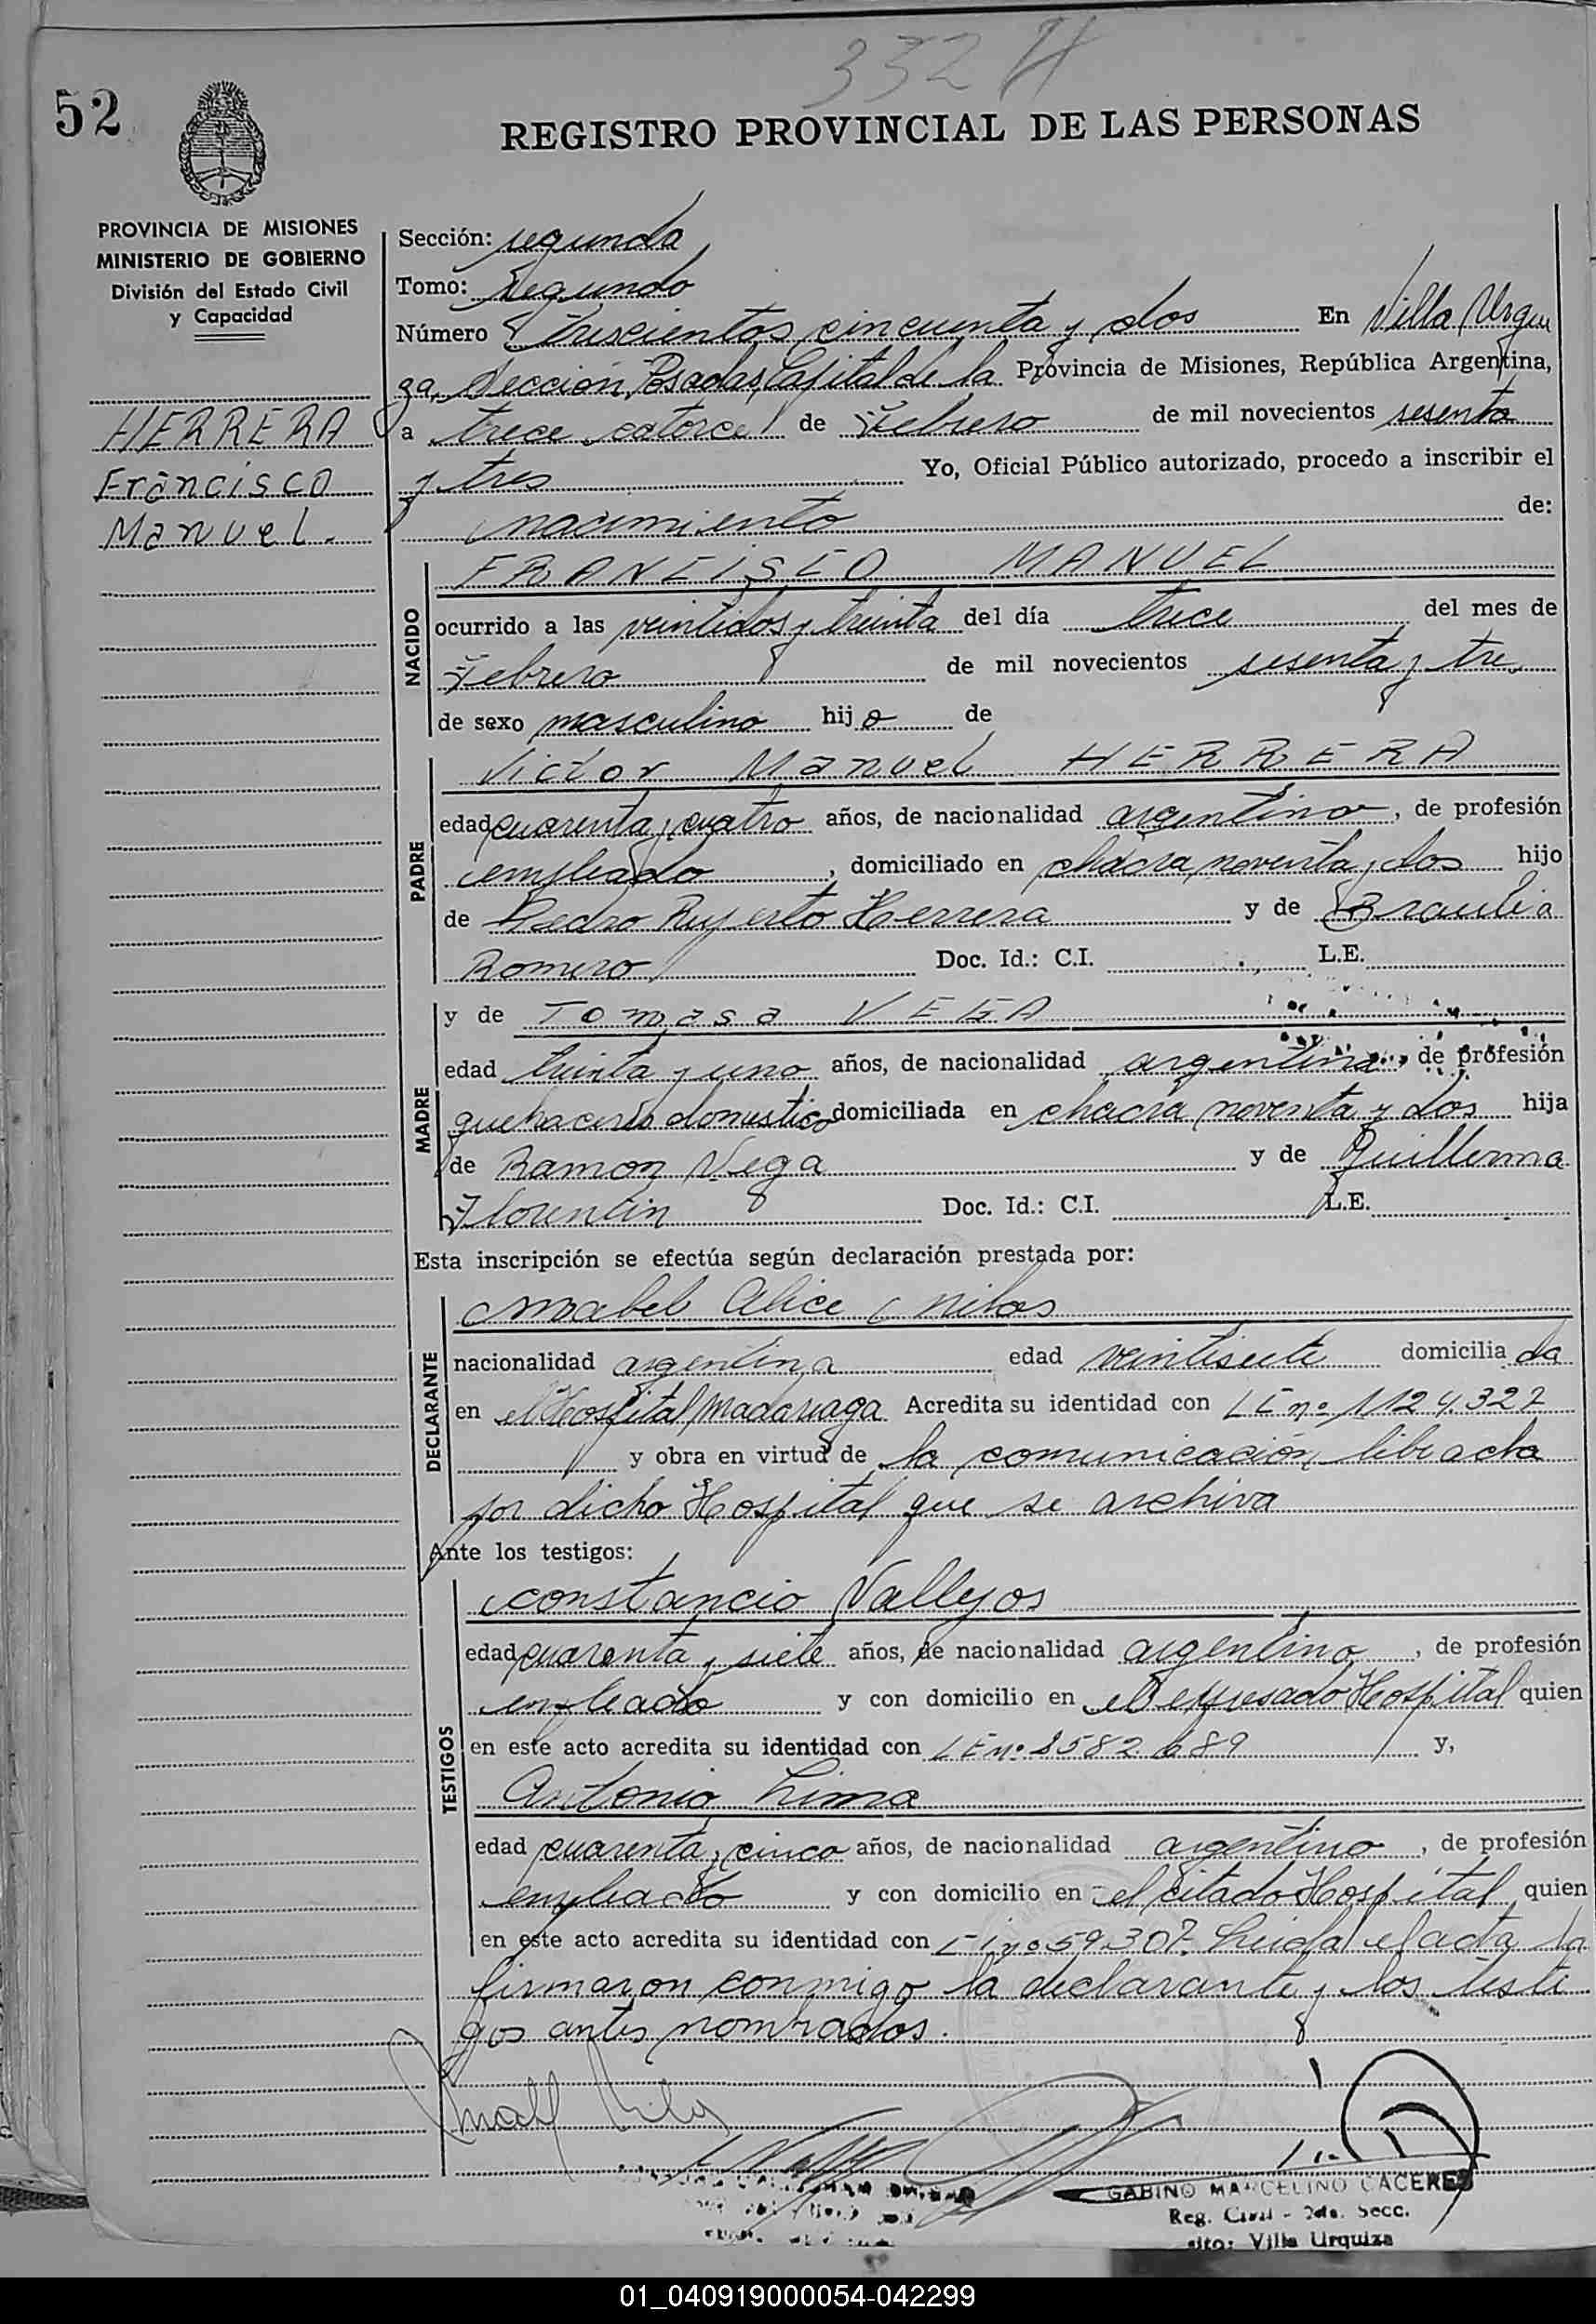 332 H
52
REGISTRO PROVINCIAL DE LAS PERSONAS
PROVINCIA DE MISIONES
MINISTERIO DE GOBIERNO
División del Estado Civil
y Capacidad
HERRERA
Francisco
Manuel.
Sección: segunda
Tomo: Segundo
Número trescientos cincuenta y dos En Villa Urqui
za, Sección, Posadas, Capital de la Provincia de Misiones, República Argentina,
a trece catorce de Febrero de mil novecientos sesenta
y tres Yo, Oficial Público autorizado, procedo a inscribir el
nacimiento de:
NACIDO
FRANCISCO MANUEL
ocurrido a las veintidos y treinta del día trece del mes de
Febrero de mil novecientos sesenta y tres
de sexo masculino hijo de
PADRE
Victor Manuel HERRERA
edad cuarenta y cuatro años, de nacionalidad argentino, de profesión
empleado, domiciliado en chacra noventa y dos hijo
de Pedro Ruperto Herrera y de Braulia
Romero Doc. Id.: C.I. L.E.
MADRE
y de Tomasa VEGA
edad treinta y uno años, de nacionalidad argentina, de profesión
quehaceres domestico domiciliada en chacra noventa y dos hija
de Ramon Vega y de Guillerma
Florentin Doc. Id.: C.I. L.E.
Esta inscripción se efectúa según declaración prestada por:
DECLARANTE
Mabel Alice
nacionalidad argentina edad veintisiete domiciliada
en el Hospital Madariaga Acredita su identidad con LE nº 1124.327
y obra en virtud de la comunicación librada
por dicho Hospital que se archiva
Ante los testigos:
TESTIGOS
Constancio Vallejos
edad cuarenta y siete años, de nacionalidad argentino, de profesión
empleado y con domicilio en el expresado Hospital quien
en este acto acredita su identidad con LE nº 8582.689 y,
Antonio Lima
edad cuarenta y cinco años, de nacionalidad argentino, de profesión
empleado y con domicilio en el citado Hospital quien
en este acto acredita su identidad con CI nº 59.307. Leida el acta la
firmaron conmigo la declarante y los testi
gos antes nombrados.
GABINO MARCELINO CACERES
Reg. Civil - 2da. Secc.
Villa Urquiza
01_040919000054-042299